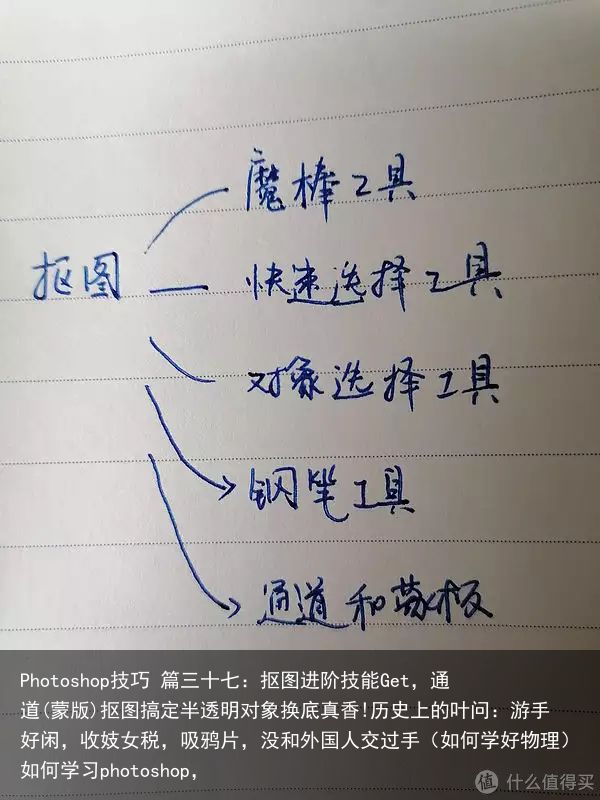 魔棒工具
抠图
快速选择工具
对象选择工具
钢笔工具
通道和蒙板
Photoshop技巧 篇三十七：抠图进阶技能Get，通
道(蒙版)抠图搞定半透明对象换底真香!历史上的叶问：游手
好闲，收妓女税，吸鸦片，没和外国人交过手（如何学好物理）
如何学习photoshop，
值 什么值得买